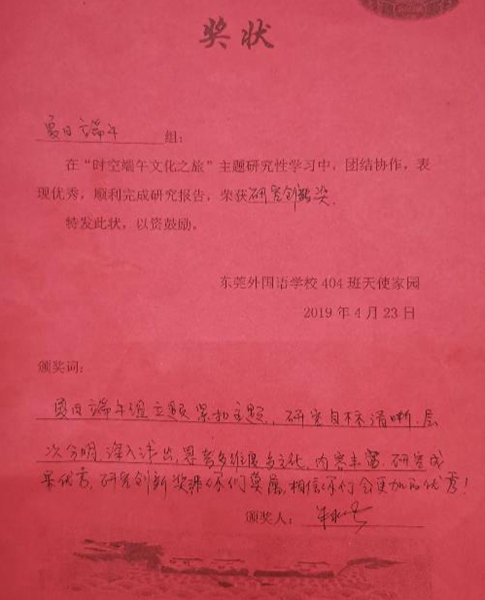 奖状
夏日端午 组：
在“时空端午文化之旅”主题研究性学习中，团结协作，表
现优秀，顺利完成研究报告，荣获研究创新奖
特发此状，以资鼓励。
东莞外国语学校 404 班天使家园
2019 年 4 月 23 日
颁奖词：
端午组主题紧扣主题，研究目标清晰，层
次分明，深入浅出，思考多维度多文化，内容丰富，研究成
果优秀，研究创新奖非你们莫属，相信你们会更加优秀！
颁奖人：